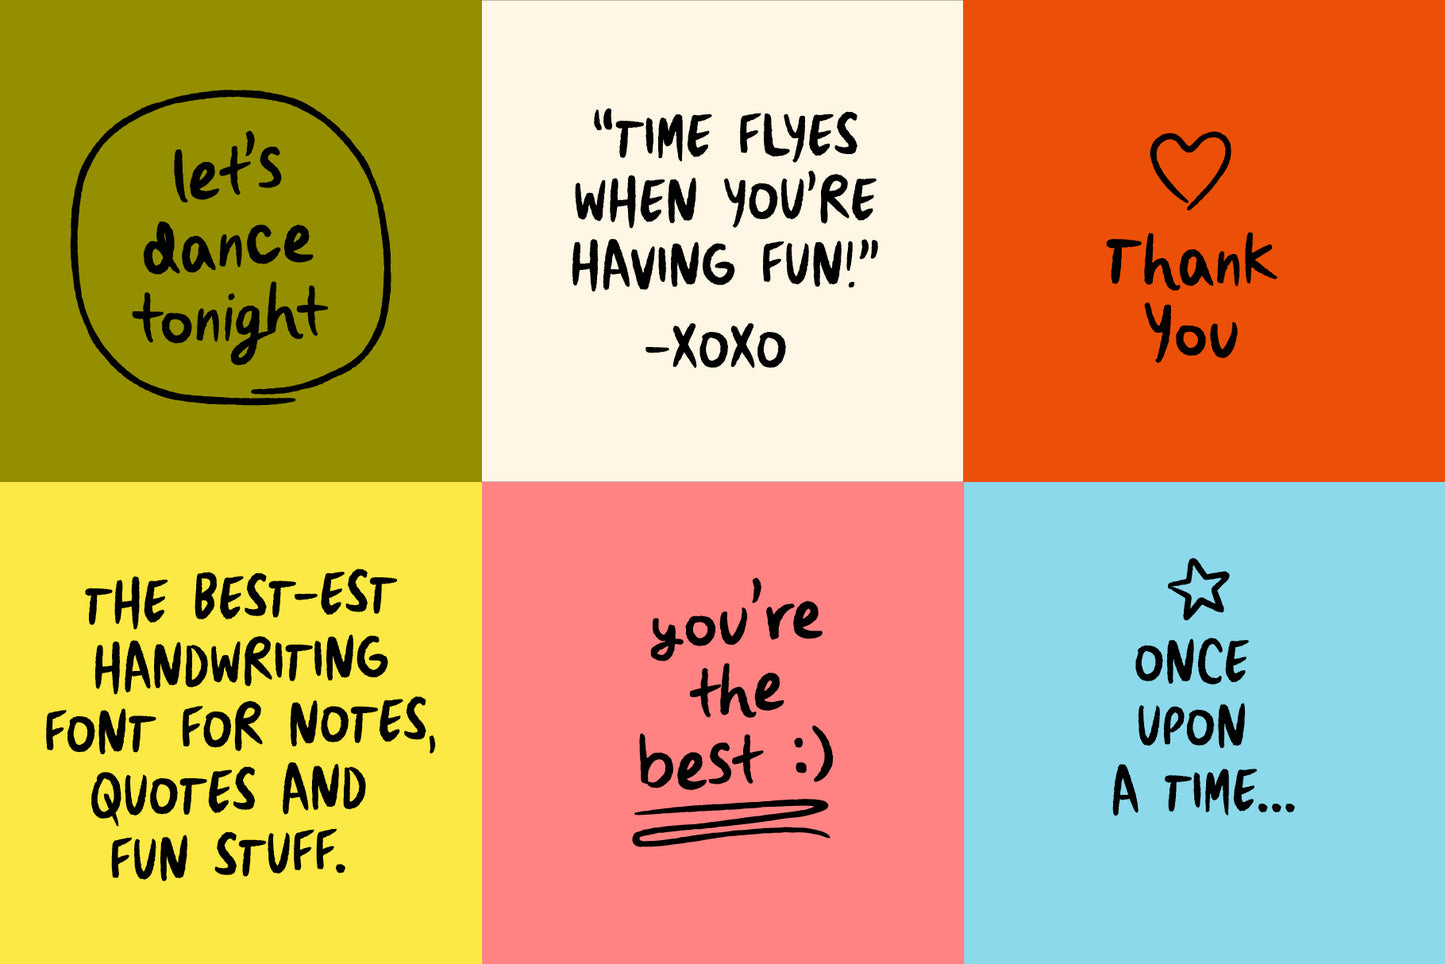 let's
dance
tonight
“TIME FLYES
WHEN YOU'RE
HAVING FUN!”
-XOXO
Thank
You
THE BEST-EST
HANDWRITING
FONT FOR NOTES,
QUOTES AND
FUN STUFF.
you're
the
best :)
ONCE
UPON
A TIME...